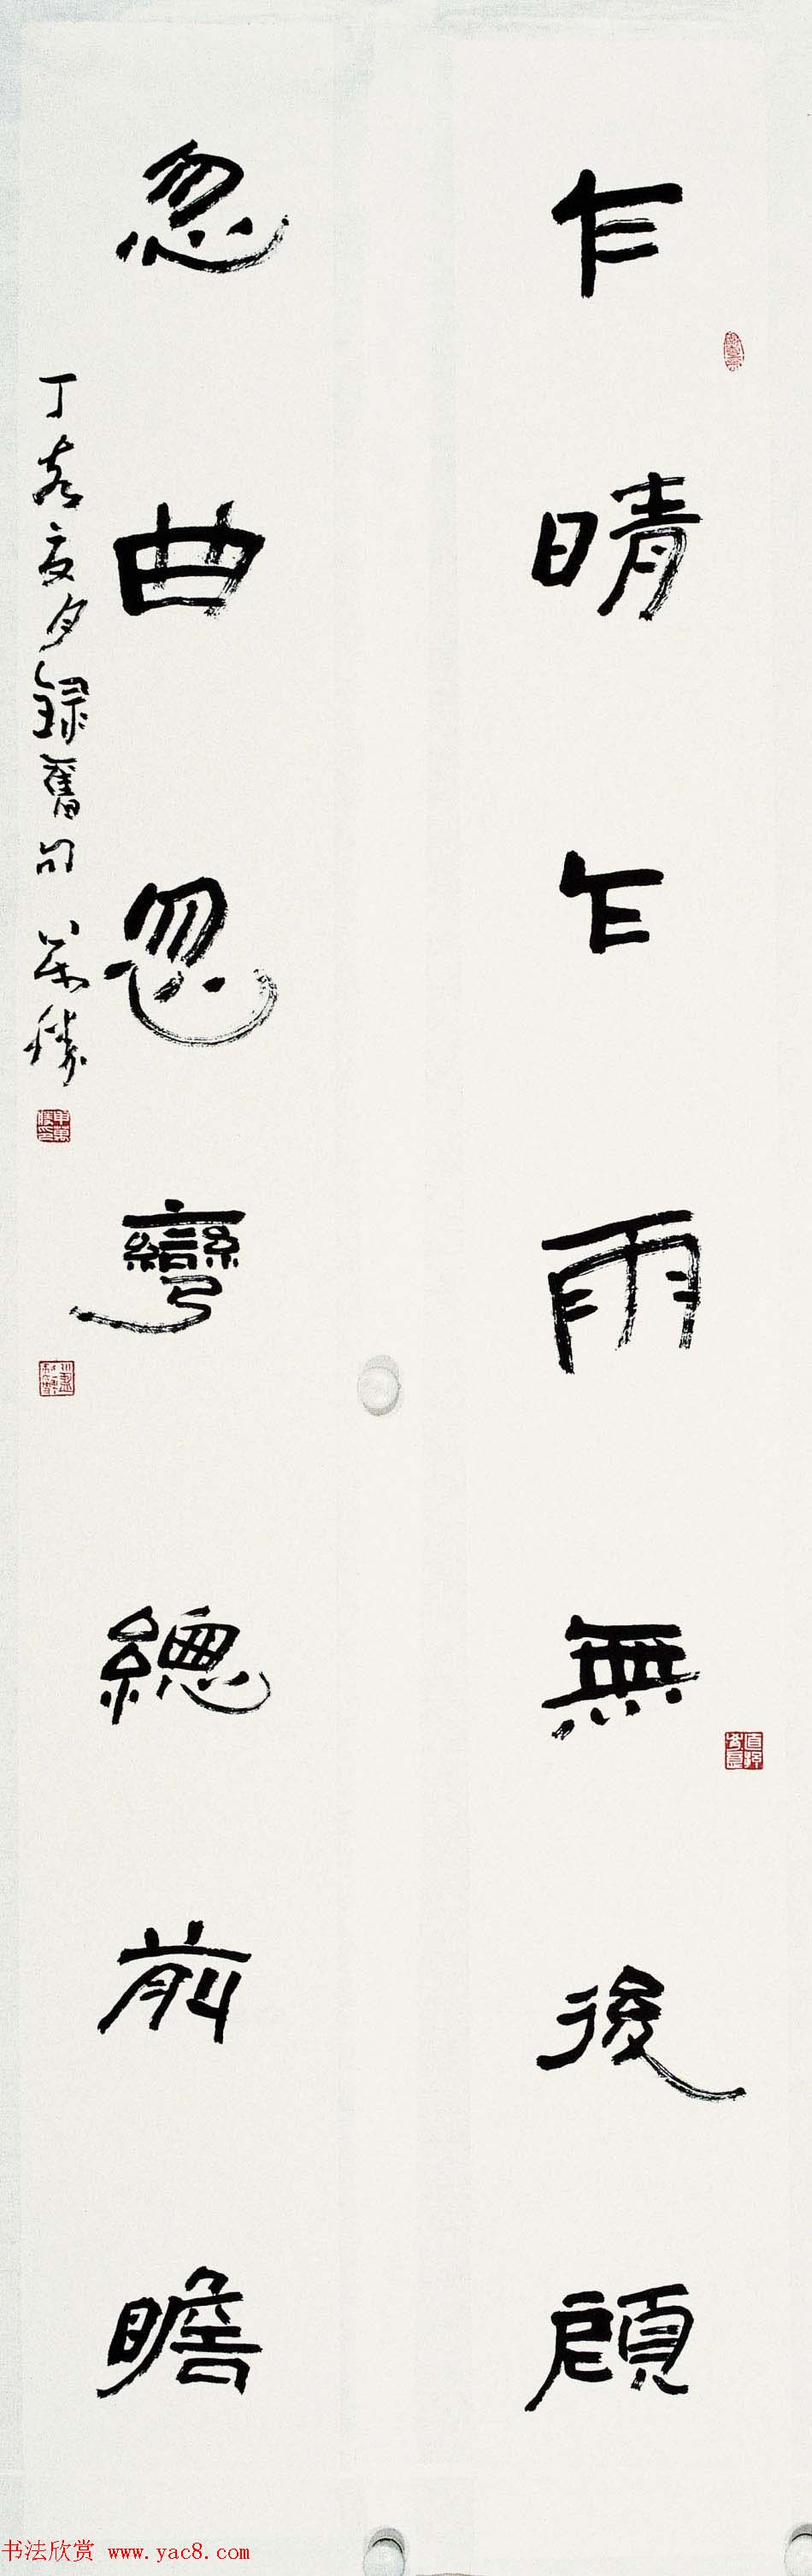 乍晴乍雨無後顧
忽曲忽彎總前瞻
丁亥夏夕録舊句 萬勝
書法欣赏 www.yac8.com